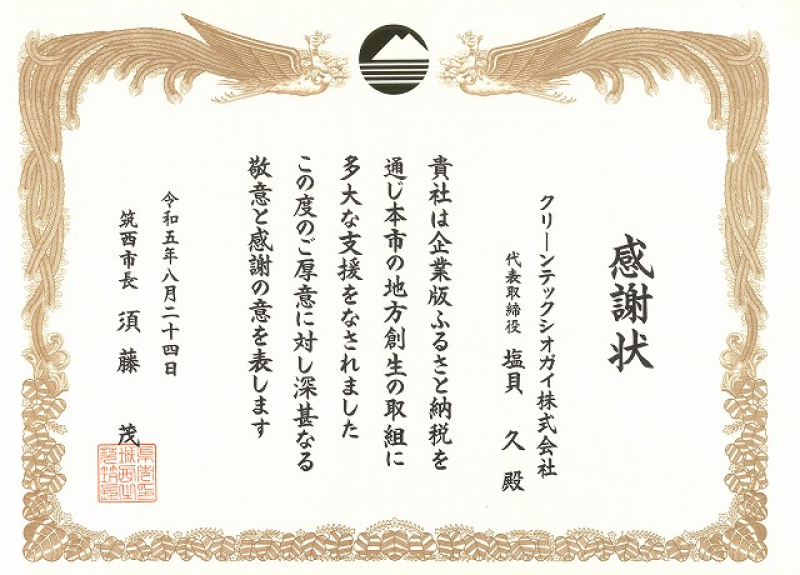 感謝状
クリーンテックシオガイ株式会社
代表取締役 塩貝 久 殿
貴社は企業版ふるさと納税を
通じ本市の地方創生の取組に
多大な支援をなされました
この度のご厚意に対し深甚なる
敬意と感謝の意を表します
令和五年八月二十四日
筑西市長 須藤 茂